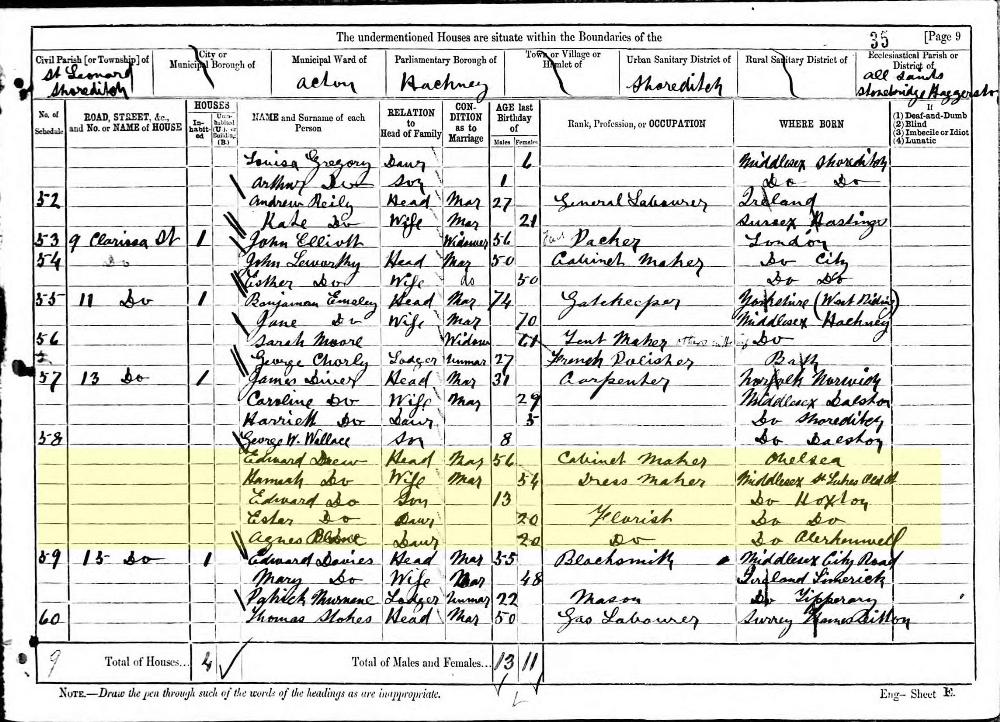 The undermentioned Houses are situate within the Boundaries of the 35 [Page 9
Civil Parish [or Township] of City or Municipal Borough of Municipal Ward of Parliamentary Borough of Town or Village or Hamlet of Urban Sanitary District of Rural Sanitary District of Ecclesiastical Parish or District of
St Leonard Shoreditch Acton Hackney Shoreditch All Saints Stonebridge Haggerston
No. of Schedule ROAD, STREET, &c., and No. or NAME of HOUSE HOUSES Inhabited Uninhabited (U.), or Building (B.) NAME and Surname of each Person RELATION to Head of Family CONDITION as to Marriage AGE last Birthday of Males Females Rank, Profession, or OCCUPATION WHERE BORN If (1) Deaf-and-Dumb (2) Blind (3) Imbecile or Idiot (4) Lunatic
Louisa Gregory Daur 6 Middlesex Shoreditch
Arthur Do Son 1 Do Do
52 Andrew Reily Head Mar 27 General Labourer Ireland
Kate Do Wife Mar 21 Sussex Hastings
53 9 Clarissa St 1 John Elliott Widower 56 Packer London
54 Do John Leworthy Head Mar 50 Cabinet Maker Do City
Esther Do Wife do 50 Do Do
55 11 Do 1 Benjaman Emsley Head Mar 74 Gatekeeper Yorkshire (West Riding)
Jane Do Wife Mar 70 Middlesex Hackney
56 Sarah Moore Widow 61 Tent Maker Do
George Chorly Lodger Unmar 27 French Polisher Bath
57 13 Do 1 James Diver Head Mar 31 Carpenter Norfolk Norwich
Caroline Do Wife Mar 29 Middlesex Dalston
Harriett Do Daur 5 Do Shoreditch
58 George W. Wallace Son 8 Do Dalston
Edward Drew Head Mar 56 Cabinet Maker Chelsea
Hannah Do Wife Mar 54 Dress Maker Middlesex St Lukes Old St
Edward Do Son 13 Do Hoxton
Ester Do Daur 20 Florist Do Do
Agnes Daur 20 Do Do Clerkenwell
59 15 Do 1 Edward Davies Head Mar 55 Blacksmith Middlesex City Road
Mary Do Wife Mar 48 Ireland Limerick
Patrick Murnane Lodger Unmar 22 Mason Do Tipperary
60 Thomas Stokes Head Mar 50 Gas Labourer Surrey Thames Ditton
9 Total of Houses... 4 Total of Males and Females... 13 11
NOTE.—Draw the pen through such of the words of the headings as are inappropriate. Eng— Sheet E.